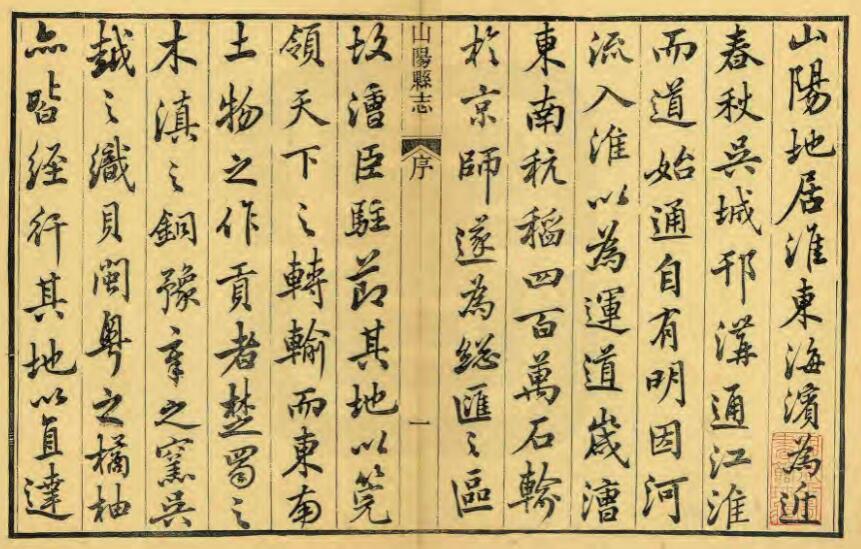 山陽地居淮東海濱為近
春秋吳城邗溝通江淮
而道始通自有明因河
流入淮以為運道歲漕
東南秔稻四百萬石輸
於京師遂為總匯之區
山陽縣志 序 一
故漕臣駐節其地以筦
領天下之轉輸而東南
土物之作貢者楚蜀之
木滇之銅豫章之窯吳
越之織貝閩粵之橘柚
無皆經行其地以直達